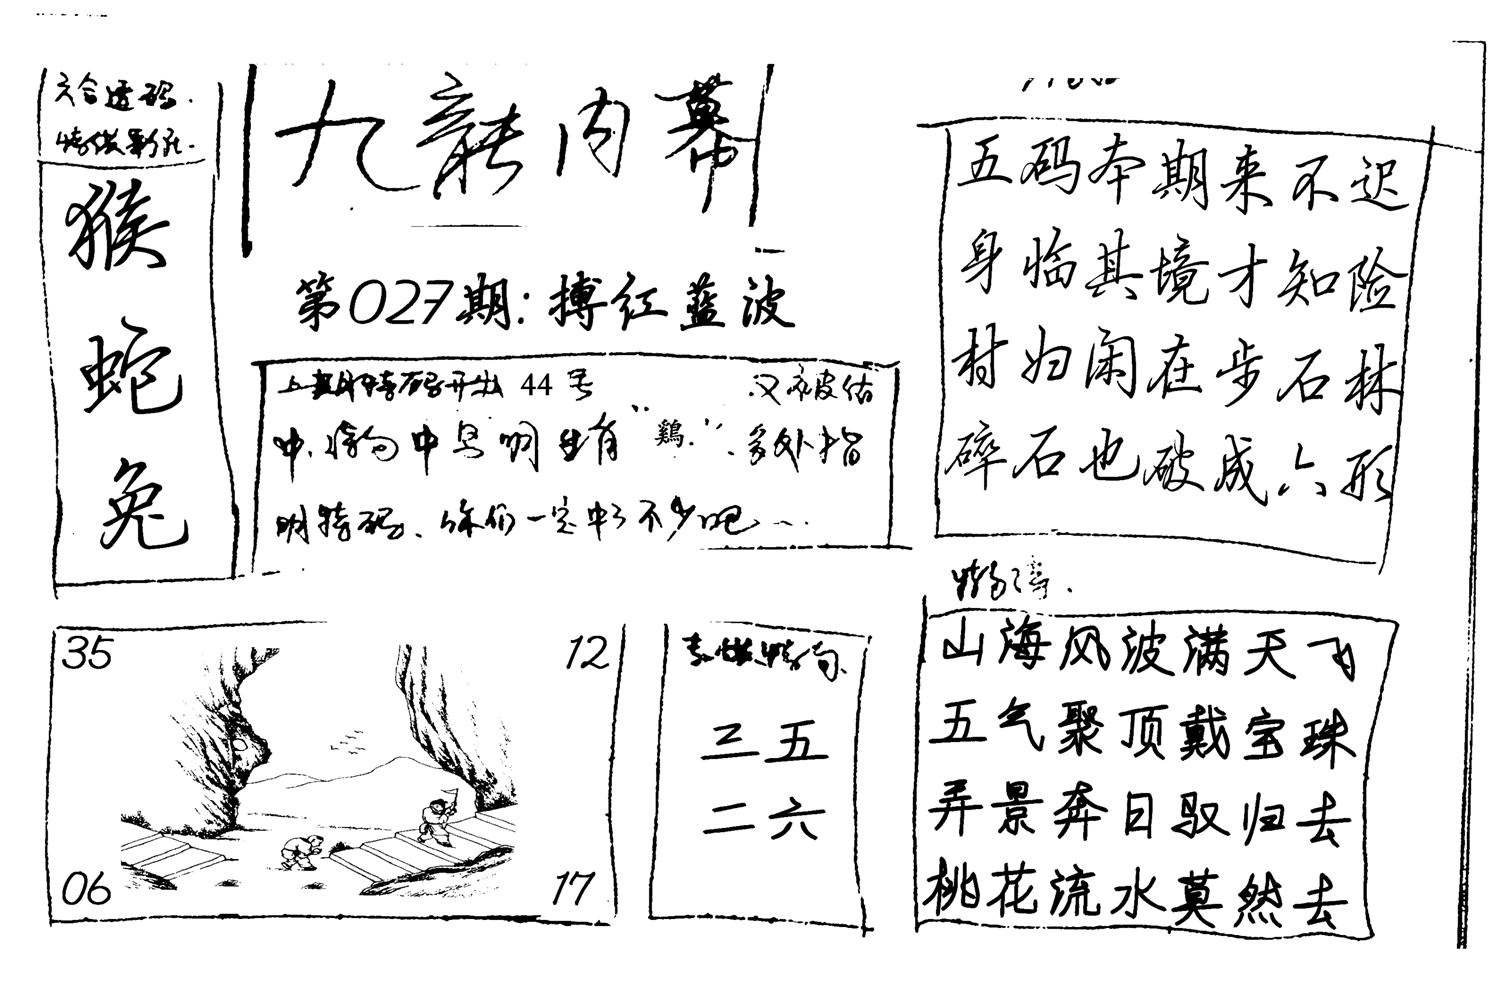 六合透码.
猴
蛇
兔
九龍内幕
第027期:搏红蓝波
上期特码开出 44 号 又被估
中.特句中早明生肖"鷄.".多处指
明特码、你们一定中了不少吧...
35
12
06
17
特句
三五
二六
五码本期来不迟
身临其境才知险
村妇闲在步石林
碎石也破成六形
山海风波满天飞
五气聚顶戴宝珠
弄景奔日驭归去
桃花流水莫然去